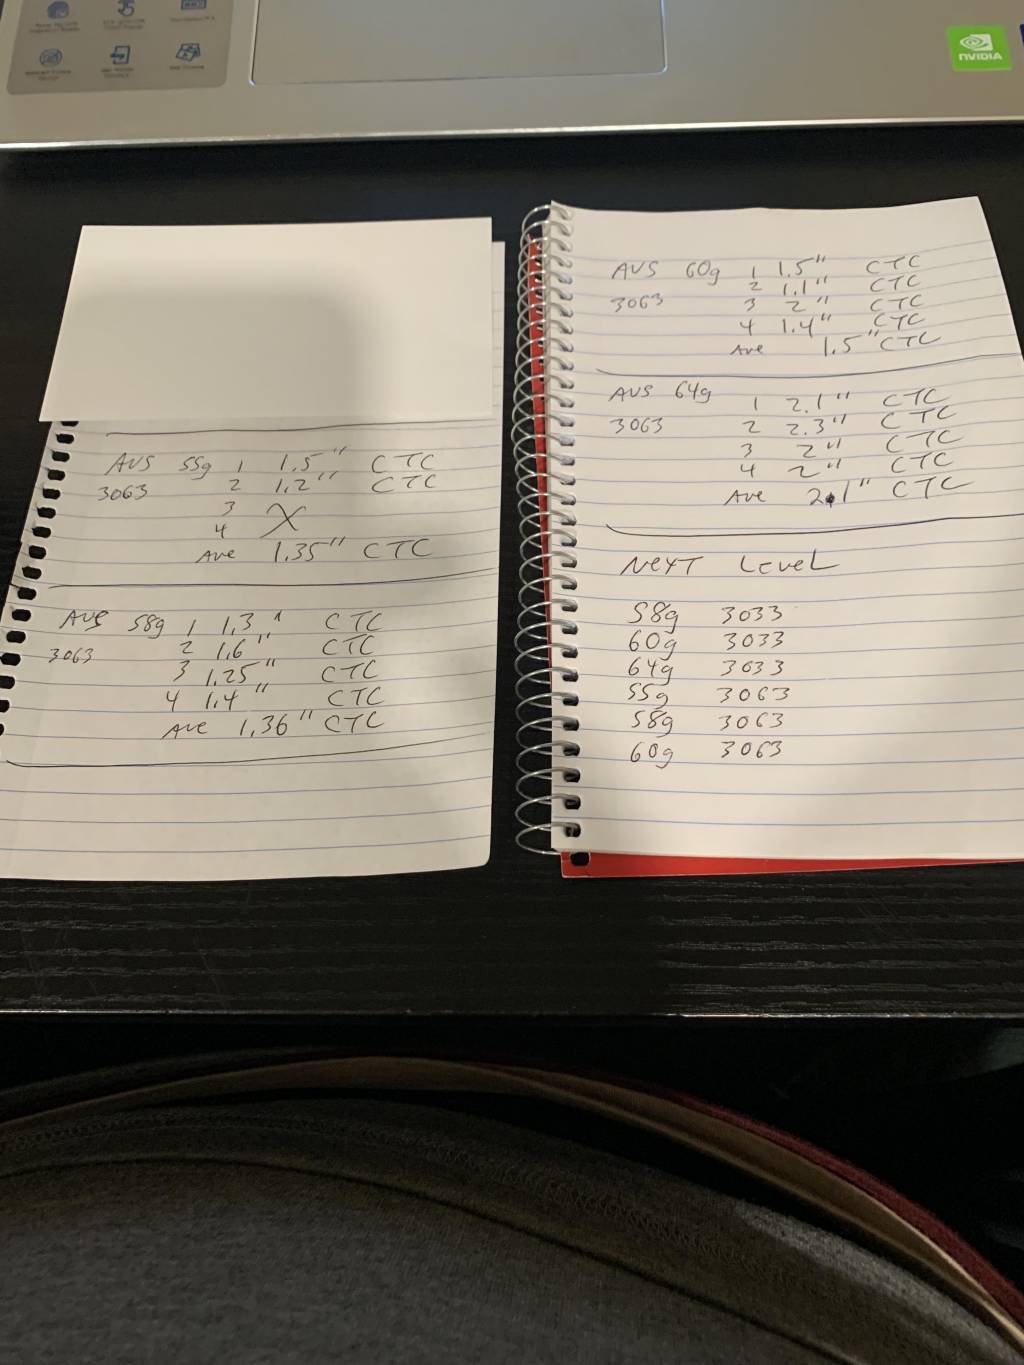 NVIDIA
AVS 55g 1 1.5" CTC
3063 2 1.2" CTC
3
4 X
Ave 1.35" CTC
AVS 58g 1 1.3" CTC
2 1.6" CTC
3063 3 1.25" CTC
4 1.4" CTC
Ave 1.36" CTC
AVS 60g 1 1.5" CTC
2 1.1" CTC
3063 3 2" CTC
4 1.4" CTC
Ave 1.5" CTC
AVS 64g 1 2.1" CTC
3063 2 2.3" CTC
3 2" CTC
4 2" CTC
Ave 2.1" CTC
NEXT LEVEL
58g 3033
60g 3033
64g 3033
55g 3063
58g 3063
60g 3063